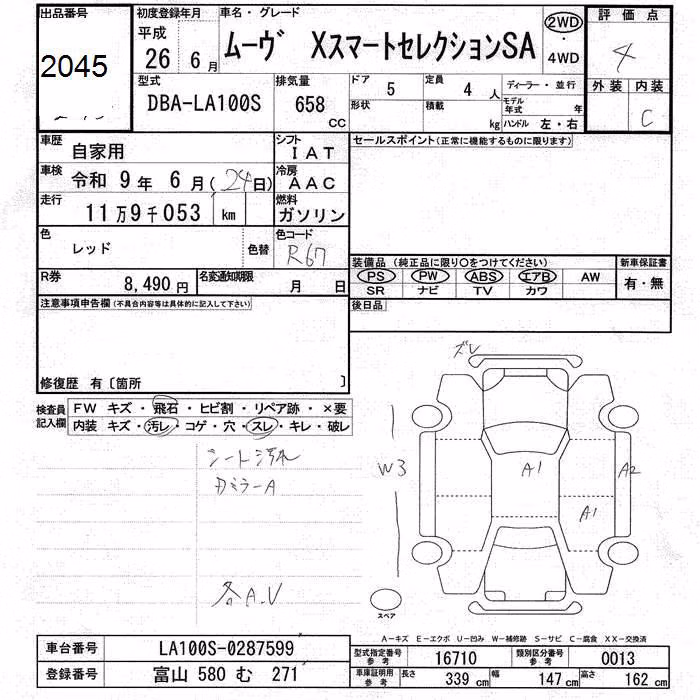 出品番号
2045
初度登録年月
平成
26 6月
車名・グレード
ムーヴ XスマートセレクションSA
2WD
・
4WD
評価点
4
外装 内装
C
型式
DBA-LA100S
排気量
658
CC
ドア
5
定員
4 人
形状
積載
kg
ディーラー・並行
モデル年式 年
ハンドル 左・右
車歴
自家用
シフト
IAT
車検
令和 9年 6月(24日)
冷房
AAC
走行
11万9千053 km
燃料
ガソリン
色
レッド
色替
色コード
R67
R券
8,490円
名変通知期限
月 日
セールスポイント(正常に機能するものに限ります)
装備品 (純正品に限り〇をつけてください)
PS PW ABS エアB AW
SR ナビ TV カワ
新車保証書
有・無
後日品
注意事項申告欄(不具合内容等は具体的に記入して下さい)
修復歴 有〔箇所 〕
検査員
記入欄
FW キズ・飛石・ヒビ割・リペア跡・×要
内装 キズ・汚レ・コゲ・穴・スレ・キレ・破レ
シート汚れ
各A.V
ズレ
W3
A1
A2
A1
スペア
A-キズ E-エクボ U-凹み W-補修跡 S-サビ C-腐食 XX-交換済
車台番号
LA100S-0287599
登録番号
富山 580 む 271
型式指定番号
参考
16710
類別区分番号
参考
0013
車庫証明用
参考
長さ
339 cm
幅
147 cm
高さ
162 cm